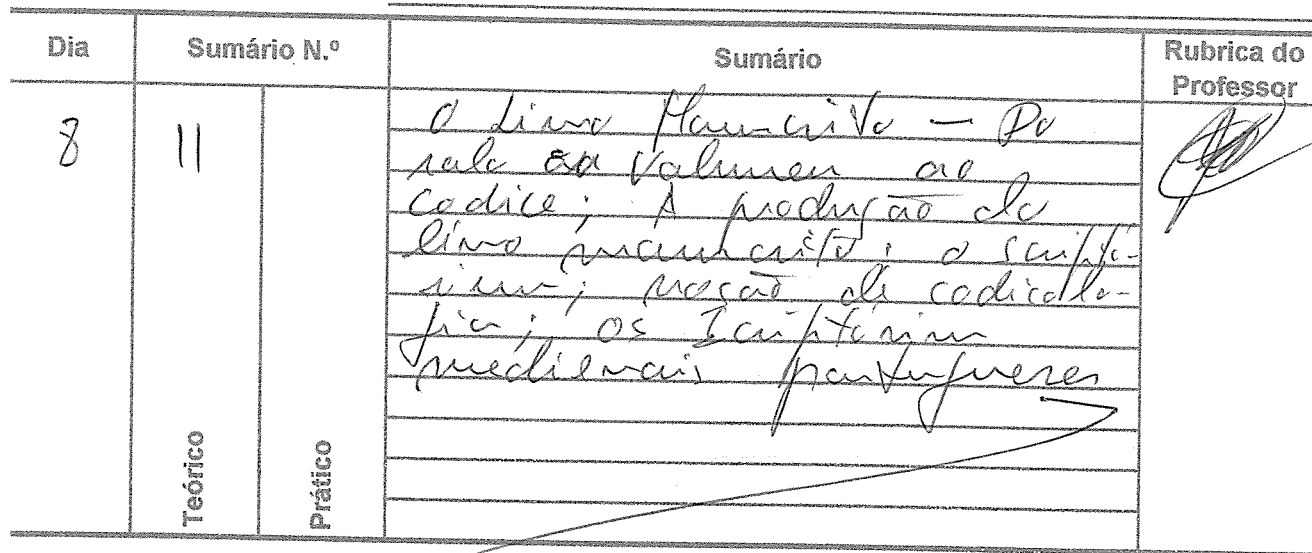 Dia Sumário N.º Sumário Rubrica do Professor
8 11
O Livro Manuscrito — Do
rolo ou Volumen ao
Codice; A produção do
livro manuscrito; o scriptó-
rium; noção de codicolo-
gia; os Scriptórium
medievais portugueses
Teórico
Prático